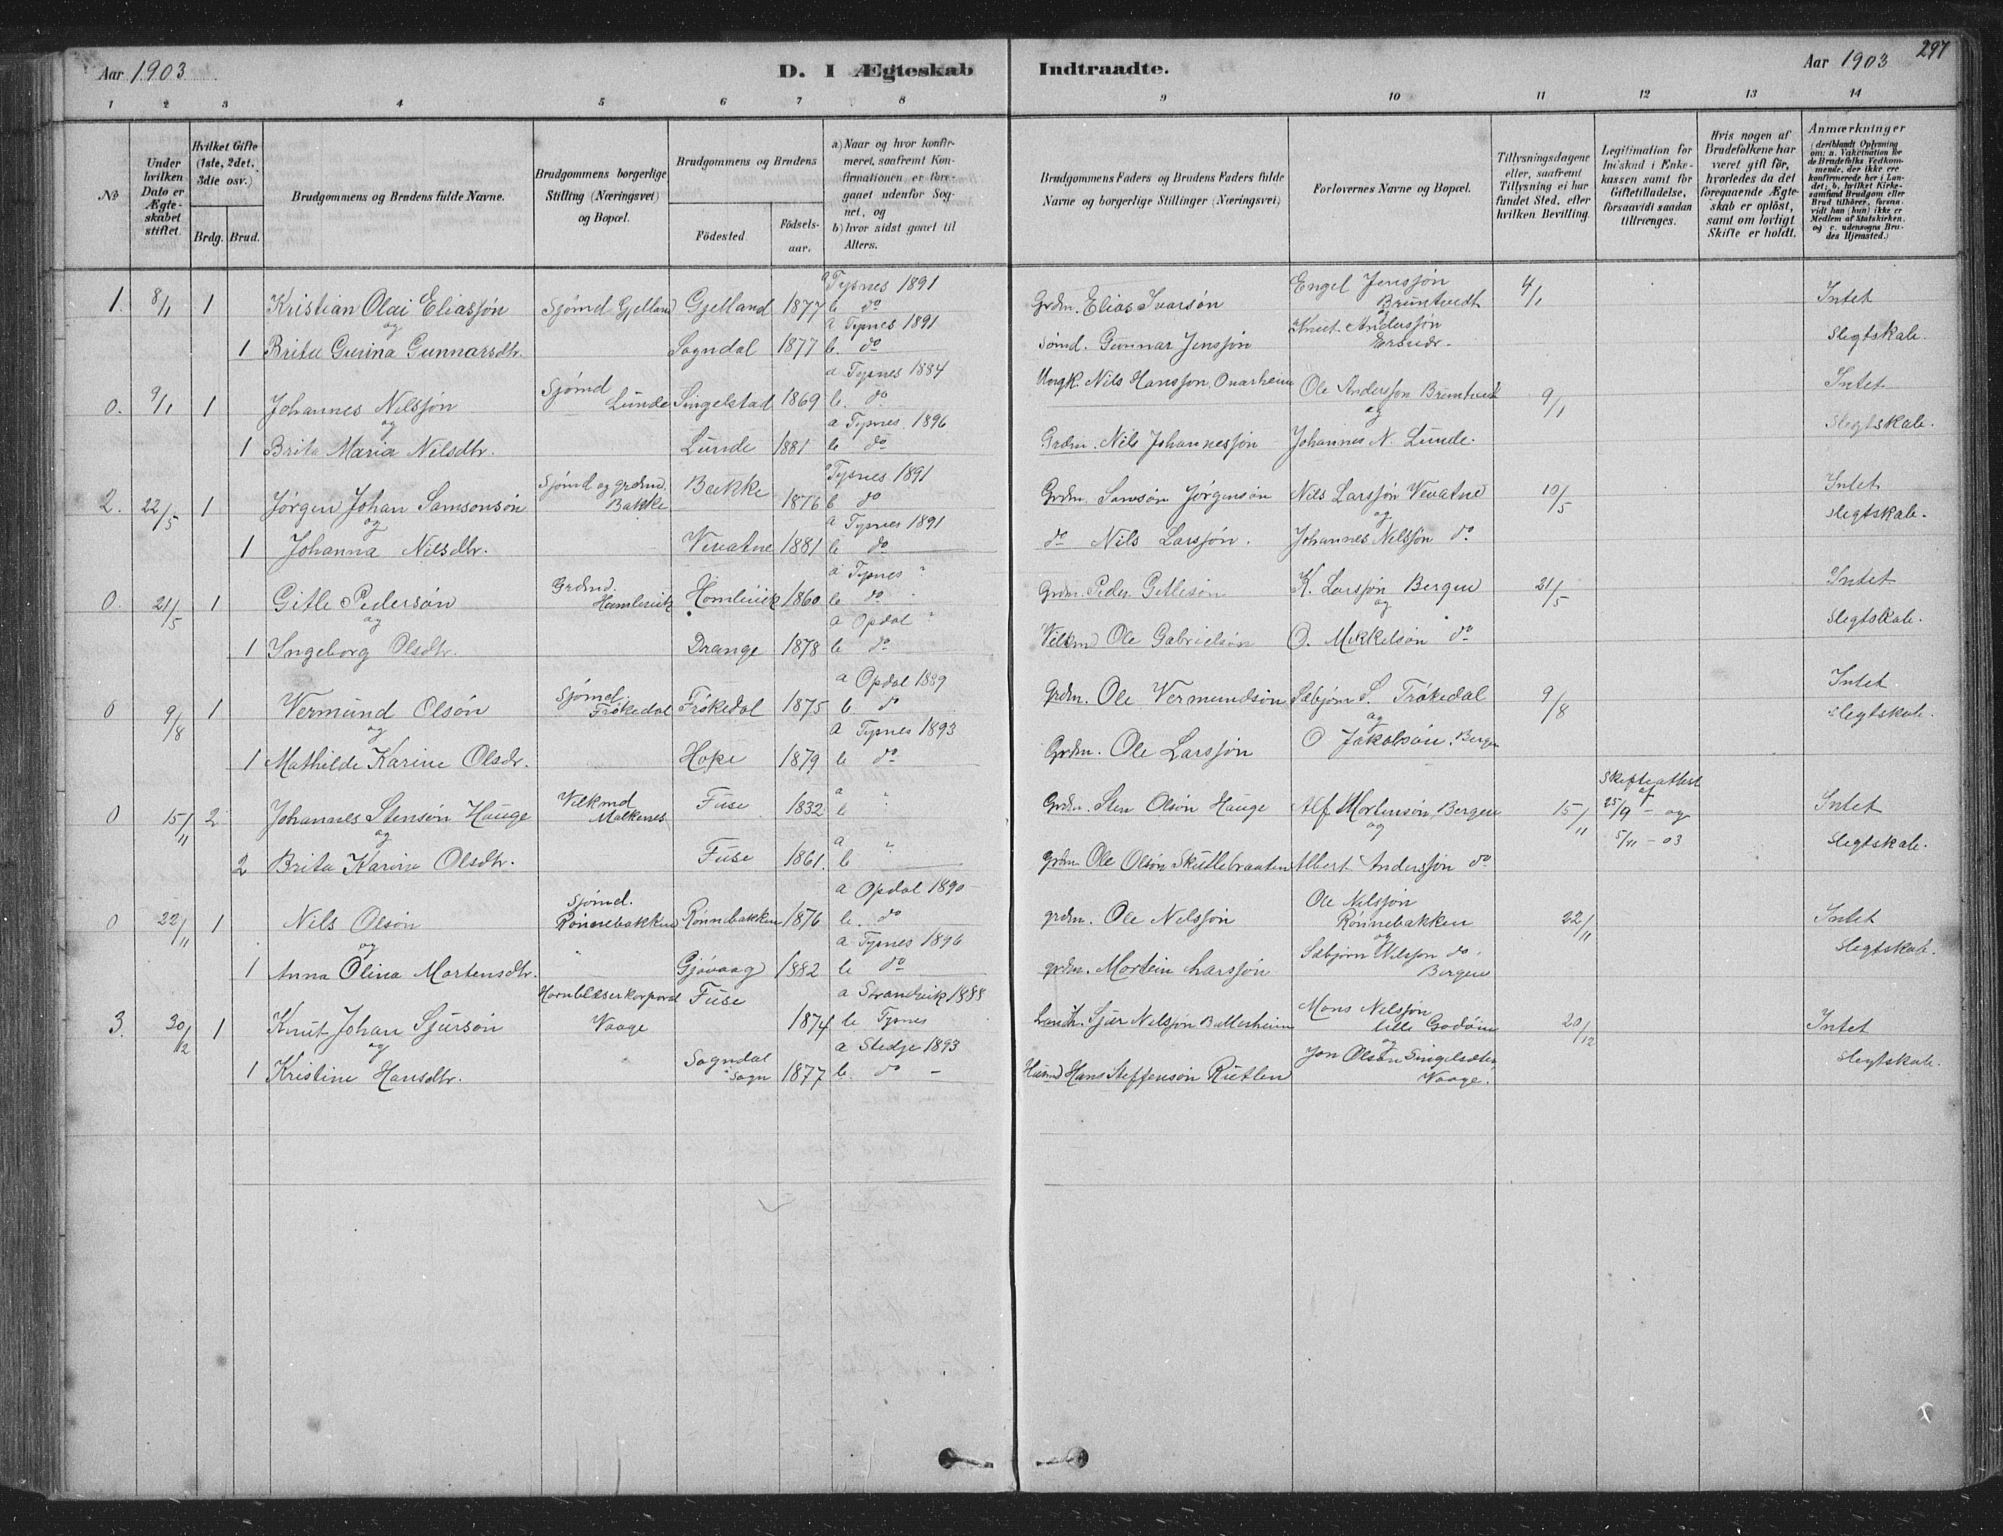 Aar 1903 D. I Ægteskab Indtraadte. Aar 1903 297
1 2 3 4 5 6 7 8 9 10 11 12 13 14
No
Under hvilken Dato er Ægteskabet stiftet.
Hvilket Gifte (1ste, 2det, 3die osv.)
Brdg. Brud.
Brudgommens og Brudens fulde Navne.
Brudgommens borgerlige Stilling (Næringsvei) og Bopæl.
Brudgommens og Brudens
Fødested Fødsels-aar.
a) Naar og hvor konfirmeret, saafremt Konfirmationen er foregaaet udenfor Sognet, og
b) hvor sidst gaaet til Alters.
Brudgommens Faders og Brudens Faders fulde Navne og borgerlige Stillinger (Næringsvei)
Forlovernes Navne og Bopæl.
Tillysningsdagene eller, saafremt Tillysning ei har fundet Sted, efter hvilken Bevilling.
Legitimation for Indskud i Enkekassen samt for Giftetilladelse, forsaavidt saadan tiltrænges.
Hvis nogen af Brudefolkene har været gift før, hvorledes da det foregaaende Ægteskab er opløst, samt om lovligt Skifte er holdt.
Anmærkninger (deriblandt Oplysning om: a. Vakcination for de Brudefolks Vedkommende, der ikke ere konfirmerede her i Landet; b. hvilket Kirkesamfund Brudgom eller Brud tilhører, forsaavidt han (hun) ikke er Medlem af Statskirken. og c. udensogns Brudes Hjemsted.)
1. 8/1 1 Kristian Olai Eliassjøn Sjømd Gjelland Gjelland 1877 a Tysnes 1891 b do Grdm. Elias Ivarsøn Engel Jenssjøn Bruntvedt 4/1 Intet
og
1 Brita Gurina Gunnarsdtr. Sogndal 1877 a Tysnes 1891 b. do Sømd. Gunnar Jenssjøn Knut Anderssjøn Slegtskab.
0. 9/1 1 Johannes Nilssjøn Sjømd Lunde Singelstad 1869 a Tysnes 1884 b. do Nils Hanssjøn Onarheim Ole Anderssjøn Bruntvedt 9/1 Intet
og og
1 Brita Maria Nilsdtr. Lunde 1881 a Tysnes 1896 b do Grdm. Nils Johannessjøn Johannes N. Lunde. Slegtskab.
2. 22/5 1 Jørgen Johan Samsonsøn Sjømd og grdmd. Bakke Bakke 1876 a Tysnes 1891 b do Grdm Samson Jørgensøn Nils Larssjøn Vevatne 10/5 Intet
og og
1 Johanna Nilsdtr. Vevatne 1881 a Tysnes 1891 b do do Nils Larssjøn. Johannes Nilssjøn do Slegtskab.
0. 21/5 1 Gitle Pedersøn Grdmd. Humlevik Homlevik 1860 a Tysnes " b do " Grdm. Peder Gitlesøn K. Larssjøn Bergen 21/5 Intet
og og
1 Ingeborg Olsdtr. Drange 1878 a Opdal " b do Ole Gabrielsøn O. Mikkelsøn do Slegtskab.
0 9/8 1 Vermund Olsøn Sjømd. Frøkedal Frøkedal 1875 a Opdal 1889 b do Grdm. Ole Vermundsøn Sæbjørn S. Frøkedal 9/8 Intet
og og
1 Mathilde Karine Olsdr. Hope 1879 a Tysnes 1893 b do Grdm. Ole Larssjøn O Jakobsøn. Bergen Slegtskab.
0 15/11 2 Johannes Stensøn Hauge Malkenes Fuse 1832 a b " Grdm. Sten Olsøn Hauge Alf Mortensøn, Bergen 15/11 Skifteattest af 25/9 - og Intet
og og
2 Brita Karine Olsdtr. Fuse 1861. a b " grdm Ole Olsøn Skutlebraaten Albert Anderssjøn do 5/11 - 03 Slegtskab.
0 22/11 1 Nils Olsøn Sjømd. Rønnebakken Rønnebakken 1876 a Opdal 1890 b. do grdm. Ole Nilssjøn Ole Nilssjøn Rønnebakken 22/11 Intet
og og
1 Anna Olina Mortensdtr. Gjøvaag 1882 a Tysnes 1896 b do grdm. Mortein Larssjøn Sæbjørn Nilssøn do. Bergen Slegtskab.
3. 30/12 1 Knut Johan Sjursøn Hornblæserkorporal Vaage Fuse 1874 a Strandvik 1888 b Tysnes Sjur Nilssjøn Mons Nilssjøn lille Godøen 20/12 Intet
og og
1 Kristine Hansdtr. Sogndal Sogn 1877 a Stedje 1893 b. do - Husmd Hans Steffensøn Rutlen Jon Olsøn Vaage. Slegtskab.